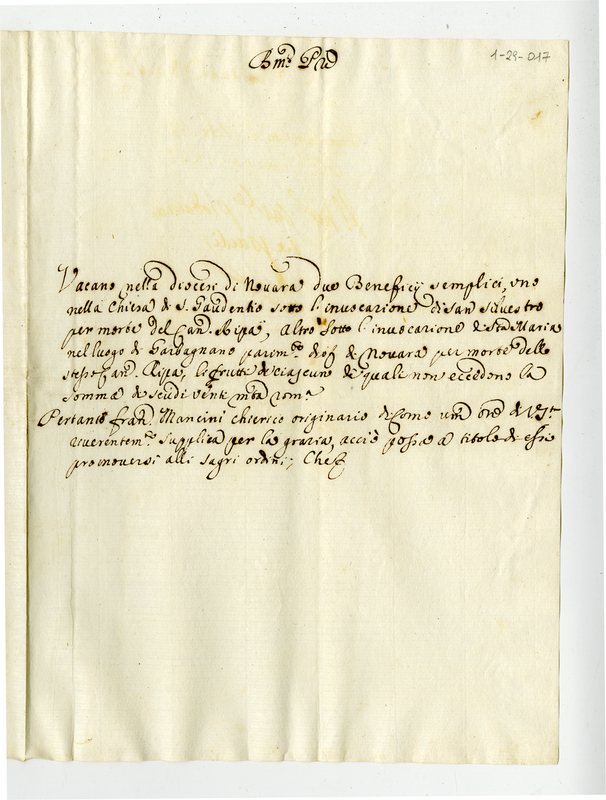 1-29-017
Bmo Pre
Vacano nella diocesi di Novara due Beneficij semplici, uno
nella Chiesa di S. Gaudentio sotto l'invocazione di san Silvestro
per morte del Can. Ripa, Altro sotto l'invocazione di Sta Maria
nel luogo di Garbagnano parimte dioc. di Novara per morte dello
stesso Can. Ripa, le frutte di ciascuno de quali non eccedono la
somma di scudi vente mta rom.
Pertanto fran. Mancini chierico originario di Como um ore di V. Sta
riverentemte supplica per la grazia, acciò possa a titolo di essi
promoversi alli sagri ordini; Che